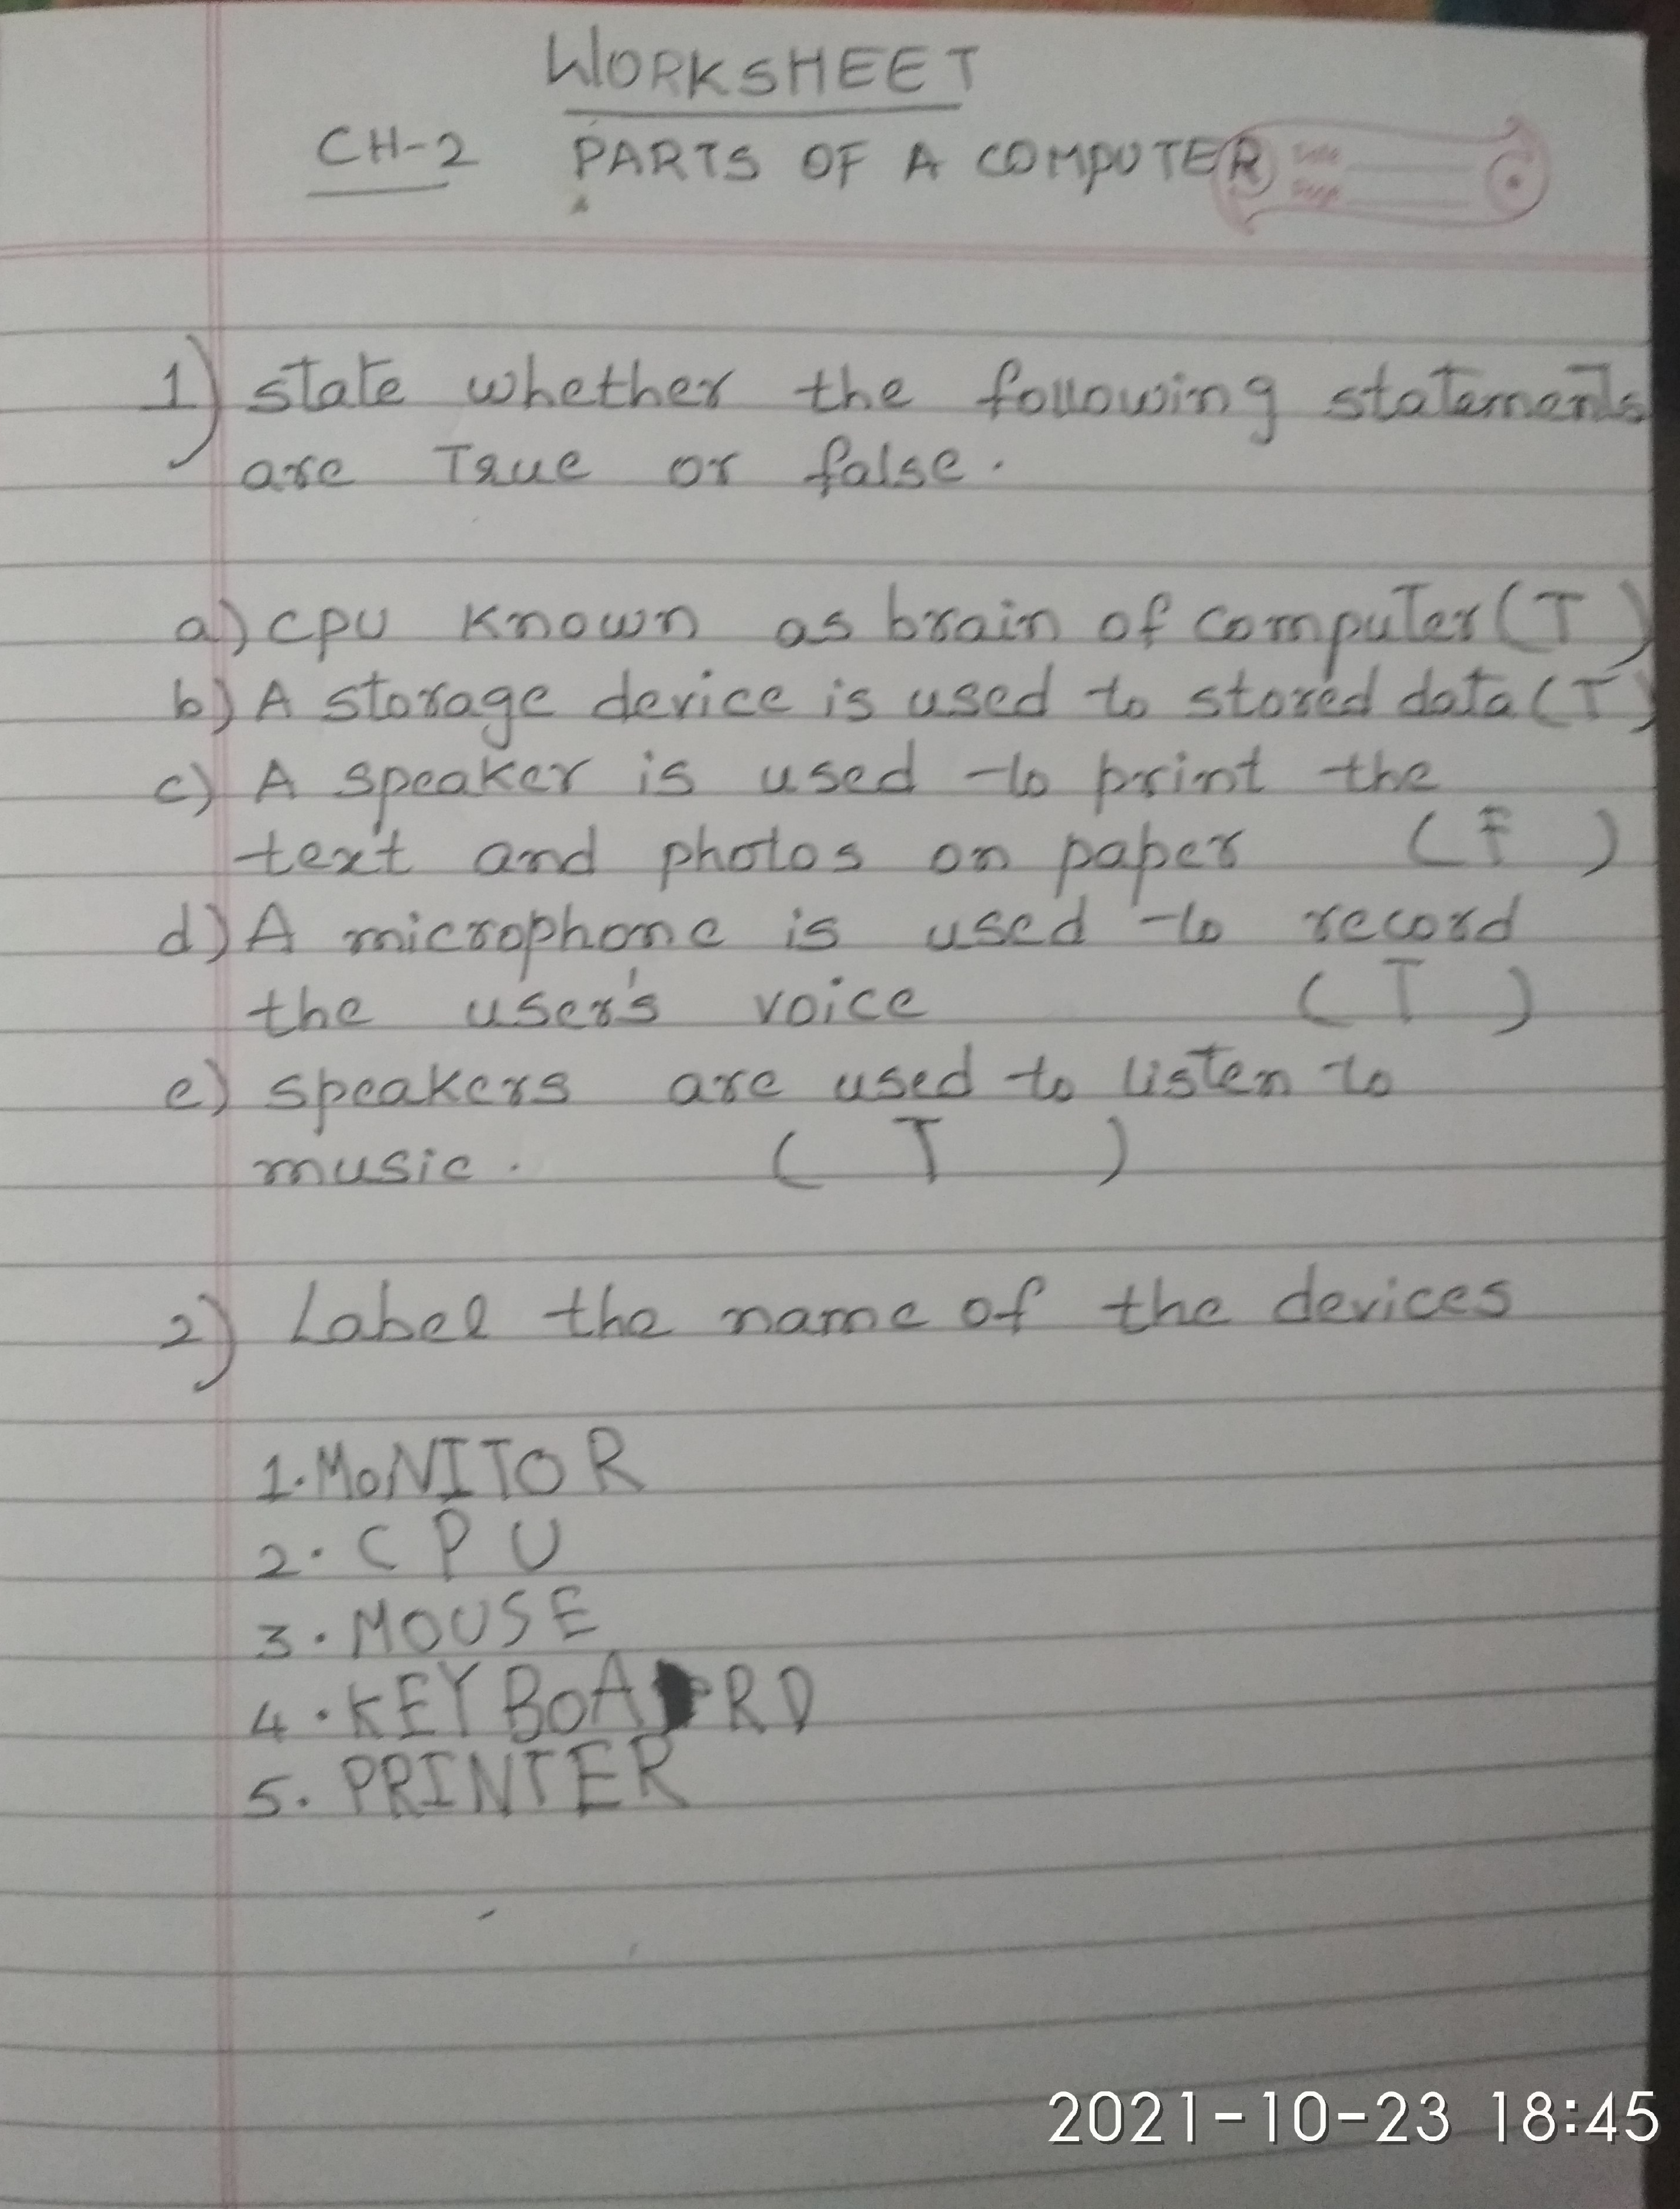 WORKSHEET
CH-2 PARTS OF A COMPUTER
Date
Page
1) state whether the following statements
are True or false.
a) cpu known as brain of computer (T)
b) A storage device is used to stored data (T)
c) A speaker is used to print the
text and photos on paper (F)
d) A microphone is used to record
the user's voice (T)
e) speakers are used to listen to
music. (T)
2) Label the name of the devices
1. MoNITOR
2. CPU
3. MOUSE
4. KEYBOARD
5. PRINTER
2021-10-23 18:45